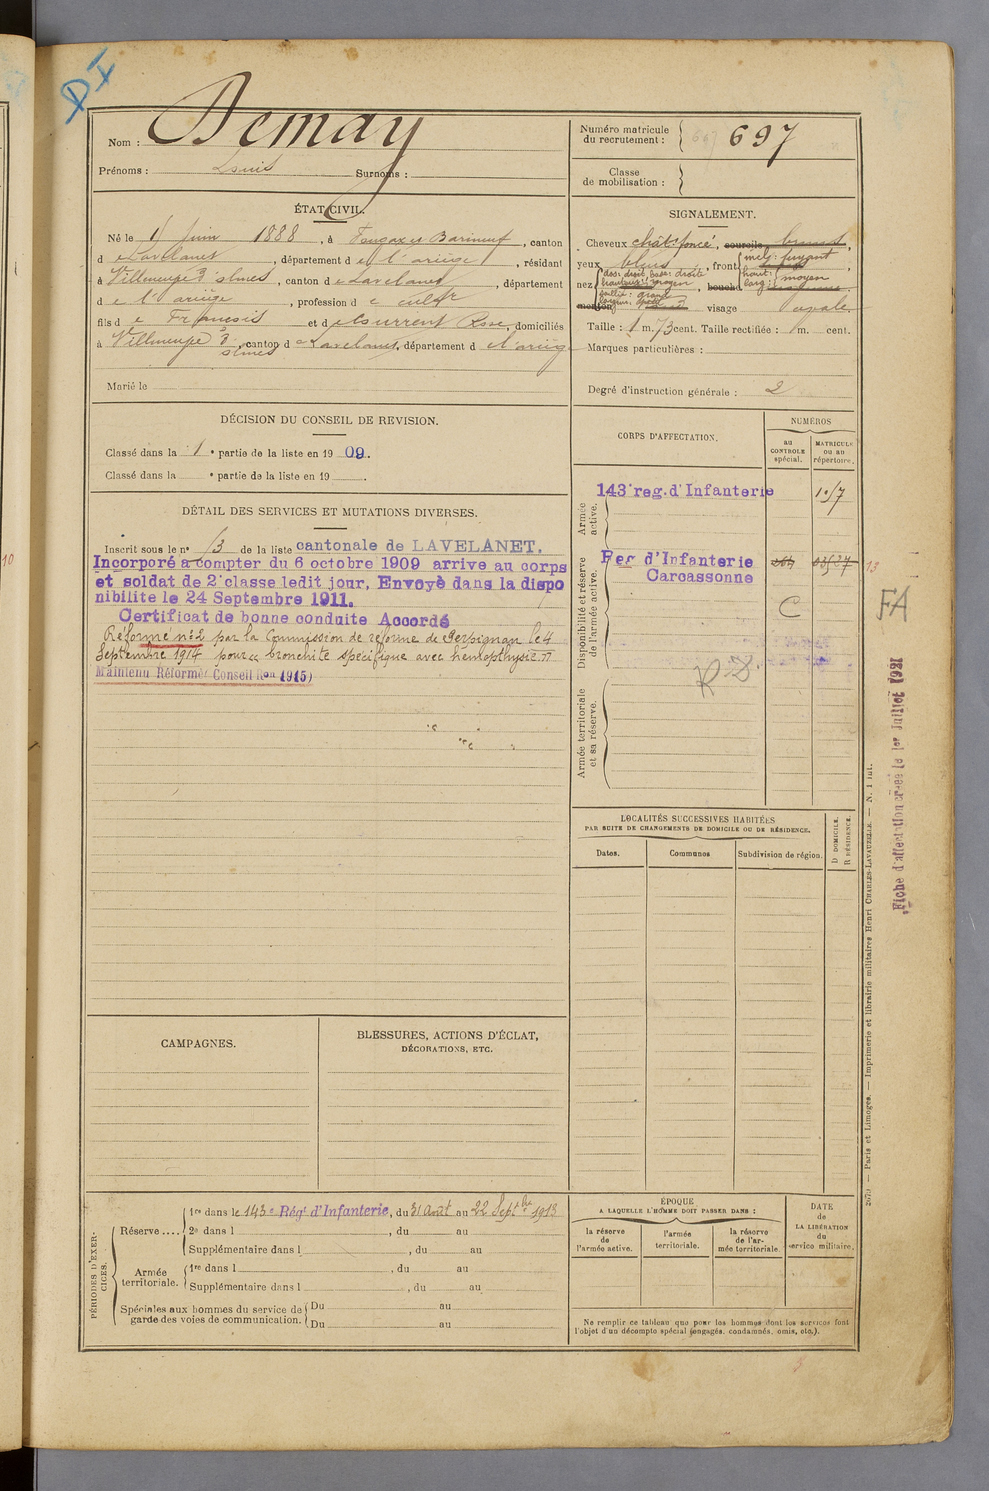 DI
Nom : Demay
Prénoms : Louis Surnoms :
Numéro matricule du recrutement : 697
Classe de mobilisation :
ÉTAT CIVIL.
Né le 1 Juin 1888, à Fougax et Barineuf, canton
d e Lavelanet, département d e l'ariège, résidant
à Villeneuve d'olmes, canton d e Lavelanet, département
d e l'ariège, profession d e cultr
fils d e François et d e Laurrent Rose, domiciliés
à Villeneuve d'olmes, canton d e Lavelanet, département d e l'ariège
Marié le
SIGNALEMENT.
Cheveux châts foncé, sourcils
yeux bleus, front mel: fuyant haut: larg: moyen
nez dos: droit, base: droite haut: moyen saillie: grand, bouche
menton visage ovale.
Taille : 1 m. 73 cent. Taille rectifiée : m. cent.
Marques particulières :
Degré d'instruction générale : 2
DÉCISION DU CONSEIL DE REVISION.
Classé dans la 1 e partie de la liste en 19 09.
Classé dans la e partie de la liste en 19 .
DÉTAIL DES SERVICES ET MUTATIONS DIVERSES.
Inscrit sous le n° 13 de la liste cantonale de LAVELANET.
Incorporé a compter du 6 octobre 1909 arrive au corps
et soldat de 2e classe ledit jour, Envoyè dans la dispo
nibilite le 24 Septembre 1911.
Certificat de bonne conduite Accordé
Réformé n° 2 par la Commission de réforme de Perpignan le 4
Septembre 1914 pour " bronchite spécifique avec hémopthysie "
Maintenu Réformé (Conseil Ron 1915)
CORPS D'AFFECTATION.
NUMÉROS
au CONTROLE spécial.
MATRICULE ou au répertoire.
Armée active.
143e reg. d'Infanterie
Disponibilité et réserve de l'armée active.
Reg d'Infanterie
Carcassonne
C
RD
Armée territoriale et sa réserve.
13
FA
Fiche d'affectation créée le 1er Juillet 1921
LOCALITÉS SUCCESSIVES HABITÉES
PAR SUITE DE CHANGEMENTS DE DOMICILE OU DE RÉSIDENCE.
Dates. Communes Subdivision de région. D DOMICILE. R RÉSIDENCE.
CAMPAGNES.
BLESSURES, ACTIONS D'ÉCLAT,
DÉCORATIONS, ETC.
PÉRIODES D'EXERCICES.
Réserve ....
1re dans le 143e Régt d'Infanterie, du 31 Août au 22 Septbre 1913
2e dans l , du au
Supplémentaire dans l , du au
Armée territoriale.
1re dans l , du au
Supplémentaire dans l , du au
Spéciales aux hommes du service de garde des voies de communication.
Du au
Du au
ÉPOQUE
A LAQUELLE L'HOMME DOIT PASSER DANS :
la réserve de l'armée active.
l'armée territoriale.
la réserve de l'armée territoriale.
DATE de LA LIBÉRATION du service militaire.
Ne remplir ce tableau que pour les hommes dont les services font
l'objet d'un décompte spécial (engagés, condamnés, omis, etc.).
Paris et Limoges. — Imprimerie et librairie militaires Henri CHARLES-LAVAUZELLE. — N. 1 int.
10